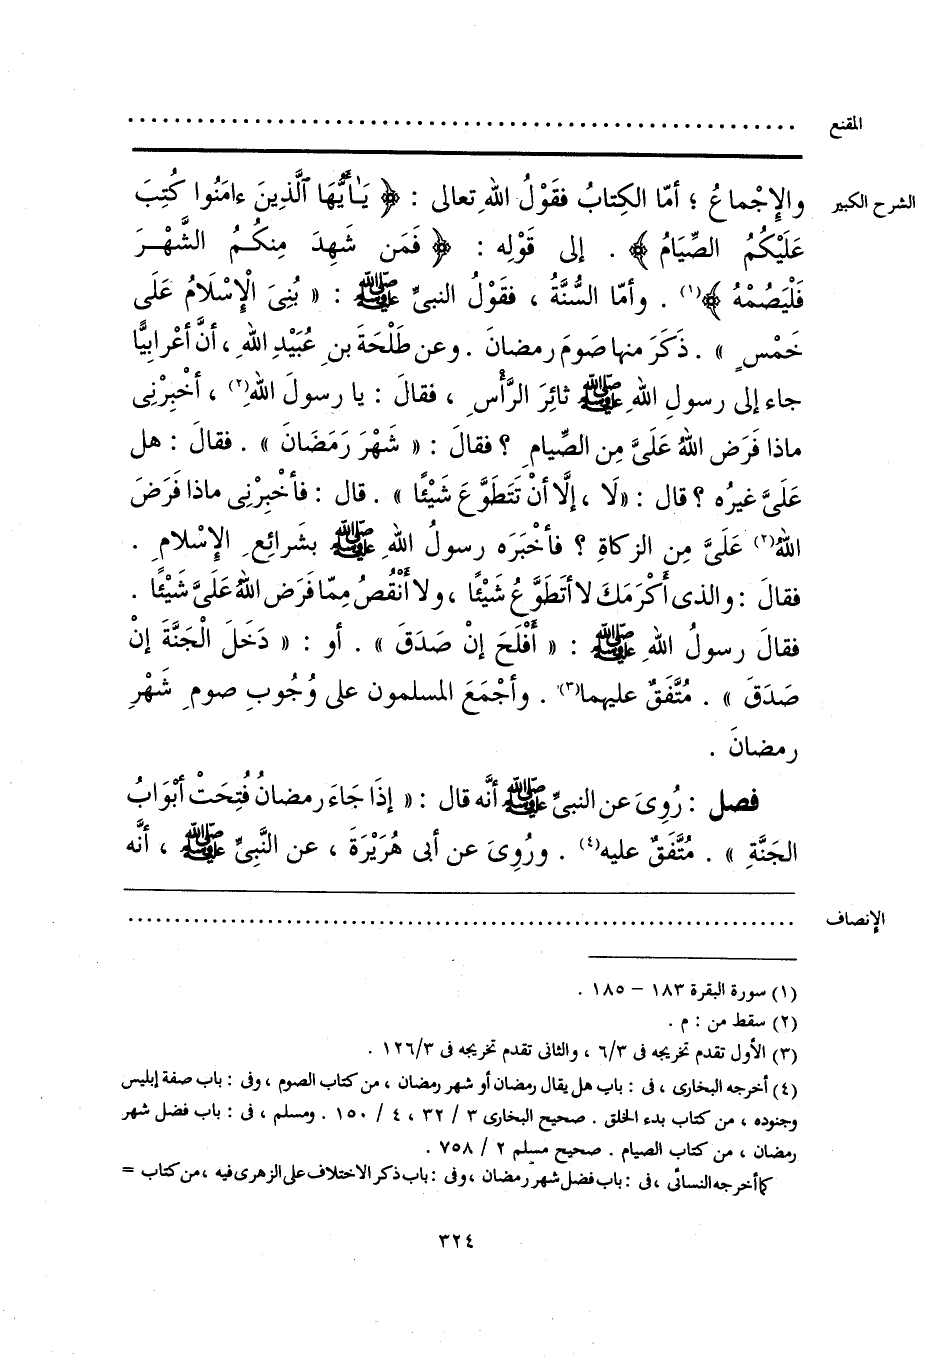 المقنع ............................................................
الشرح الكبير والإِجْماعُ ؛ أمّا الكِتابُ فقَوْلُ اللهِ تعالى : ﴿ يَـٰأَيُّهَا ٱلَّذِينَ ءامَنُوا كُتِبَ
عَلَيْكُمُ الصِّيَامُ ﴾ . إلى قَوْلِه : ﴿ فَمَن شَهِدَ مِنكُمُ الشَّهْرَ
فَلْيَصُمْهُ ﴾(١) . وأمّا السُّنَّةُ ، فقَوْلُ النبىِّ ﷺ : « بُنِىَ الْإِسْلَامُ عَلَى
خَمْسٍ » . ذَكَرَ منها صَومَ رمضانَ . وعن طَلْحَةَ بنِ عُبَيْدِ اللهِ ، أنَّ أعْرابِيًّا
جاء إلى رسولِ اللهِ ﷺ ثائِرَ الرَّأْسِ ، فقالَ : يا رسولَ اللهِ(٢) ، أخْبِرْنِى
ماذا فَرَض اللهُ عَلَىَّ مِن الصِّيامِ ؟ فقالَ : « شَهْرَ رَمَضَانَ » . فقالَ : هل
عَلَىَّ غيرُه ؟ قال : «لَا ، إلَّا أنْ تَتَطَوَّعَ شَيْئًا » . قال : فأخْبِرْنِى ماذا فَرَضَ
اللهُ(٢) عَلَىَّ مِن الزكاةِ ؟ فأخْبَرَه رسولُ اللهِ ﷺ بشَرائِعِ الإِسْلامِ .
فقالَ : والذى أكْرَمَكَ لا أتَطَوَّعُ شَيْئًا ، ولا أنْقُصُ مِمّا فَرَض اللهُ عَلَىَّ شَيْئًا .
فقالَ رسولُ اللهِ ﷺ : « أفْلَحَ إنْ صَدَقَ » . أو : « دَخَلَ الْجَنَّةَ إنْ
صَدَقَ » . مُتَّفَقٌ عليهما(٣) . وأجْمَعَ المسلمون على وُجُوبِ صومِ شَهْرِ
رمضانَ .
فصل : رُوِىَ عن النبىِّ ﷺ أنَّه قال : « إذَا جَاءَ رمضانُ فُتِحَتْ أبْوَابُ
الجَنَّةِ » . مُتَّفَقٌ عليه(٤) . ورُوِىَ عن أبى هُرَيْرَةَ ، عن النَّبِىِّ ﷺ ، أنَّه
الإنصاف ............................................................
(١) سورة البقرة ١٨٣ – ١٨٥ .
(٢) سقط من : م .
(٣) الأول تقدم تخريجه فى ٦/٣ ، والثانى تقدم تخريجه فى ١٢٦/٣ .
(٤) أخرجه البخارى ، فى : باب هل يقال رمضان أو شهر رمضان ، من كتاب الصوم ، وفى : باب صفة إبليس
وجنوده ، من كتاب بدء الخلق . صحيح البخارى ٣ / ٣٢ ، ٤ / ١٥٠ . ومسلم ، فى : باب فضل شهر
رمضان ، من كتاب الصيام . صحيح مسلم ٢ / ٧٥٨ .
كما أخرجه النسائى ، فى : باب فضل شهر رمضان ، وفى : باب ذكر الاختلاف على الزهرى فيه ، من كتاب =
٣٢٤